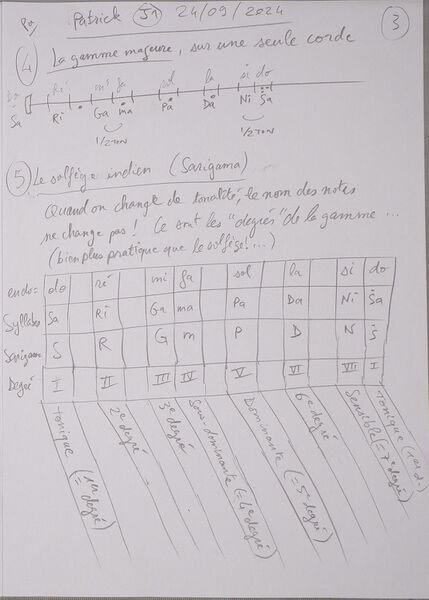 Patrick J1 24/09/2024
3
4 La gamme majeure, sur une seule corde
do ré mi fa sol la si do
Sa Ri Ga ma Pa Da Ni Sa
1/2 TON 1/2 TON
5 Le solfège indien (Sarigama)
Quand on change de tonalité, le nom des notes
ne change pas ! Ce sont les "degrés" de la gamme ...
(bien plus pratique que le solfège !...)
en do= do ré mi fa sol la si do
Syllabes Sa Ri Ga ma Pa Da Ni Sa
Sarigama S R G m P D N S
Degré I II III IV V VI VII I
Tonique (= 1er degré)
2e degré
3e degré
Sous-dominante (= 4e degré)
Dominante (= 5e degré)
6e degré
Sensible (= 7e degré)
Tonique (1er d.)